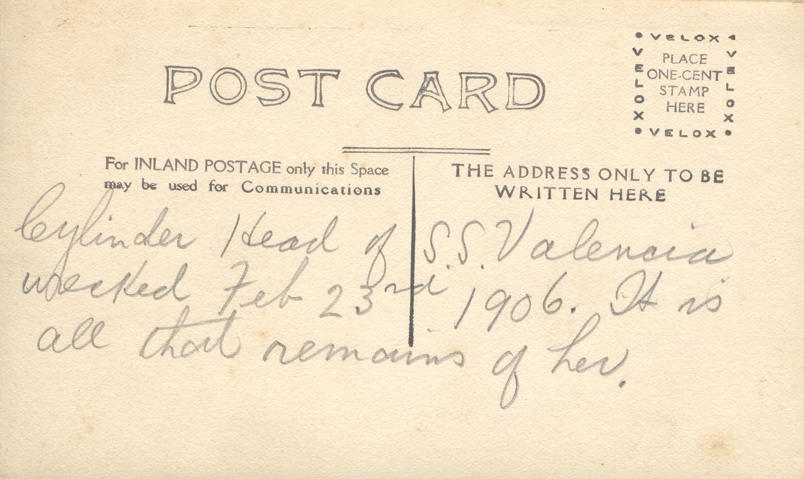 POST CARD
• VELOX •
VELOX
VELOX
PLACE
ONE-CENT
STAMP
HERE
• VELOX •
For INLAND POSTAGE only this Space
may be used for Communications
THE ADDRESS ONLY TO BE
WRITTEN HERE
Cylinder Head of S.S. Valencia
wrecked Feb 23rd. 1906. It is
all that remains of her.